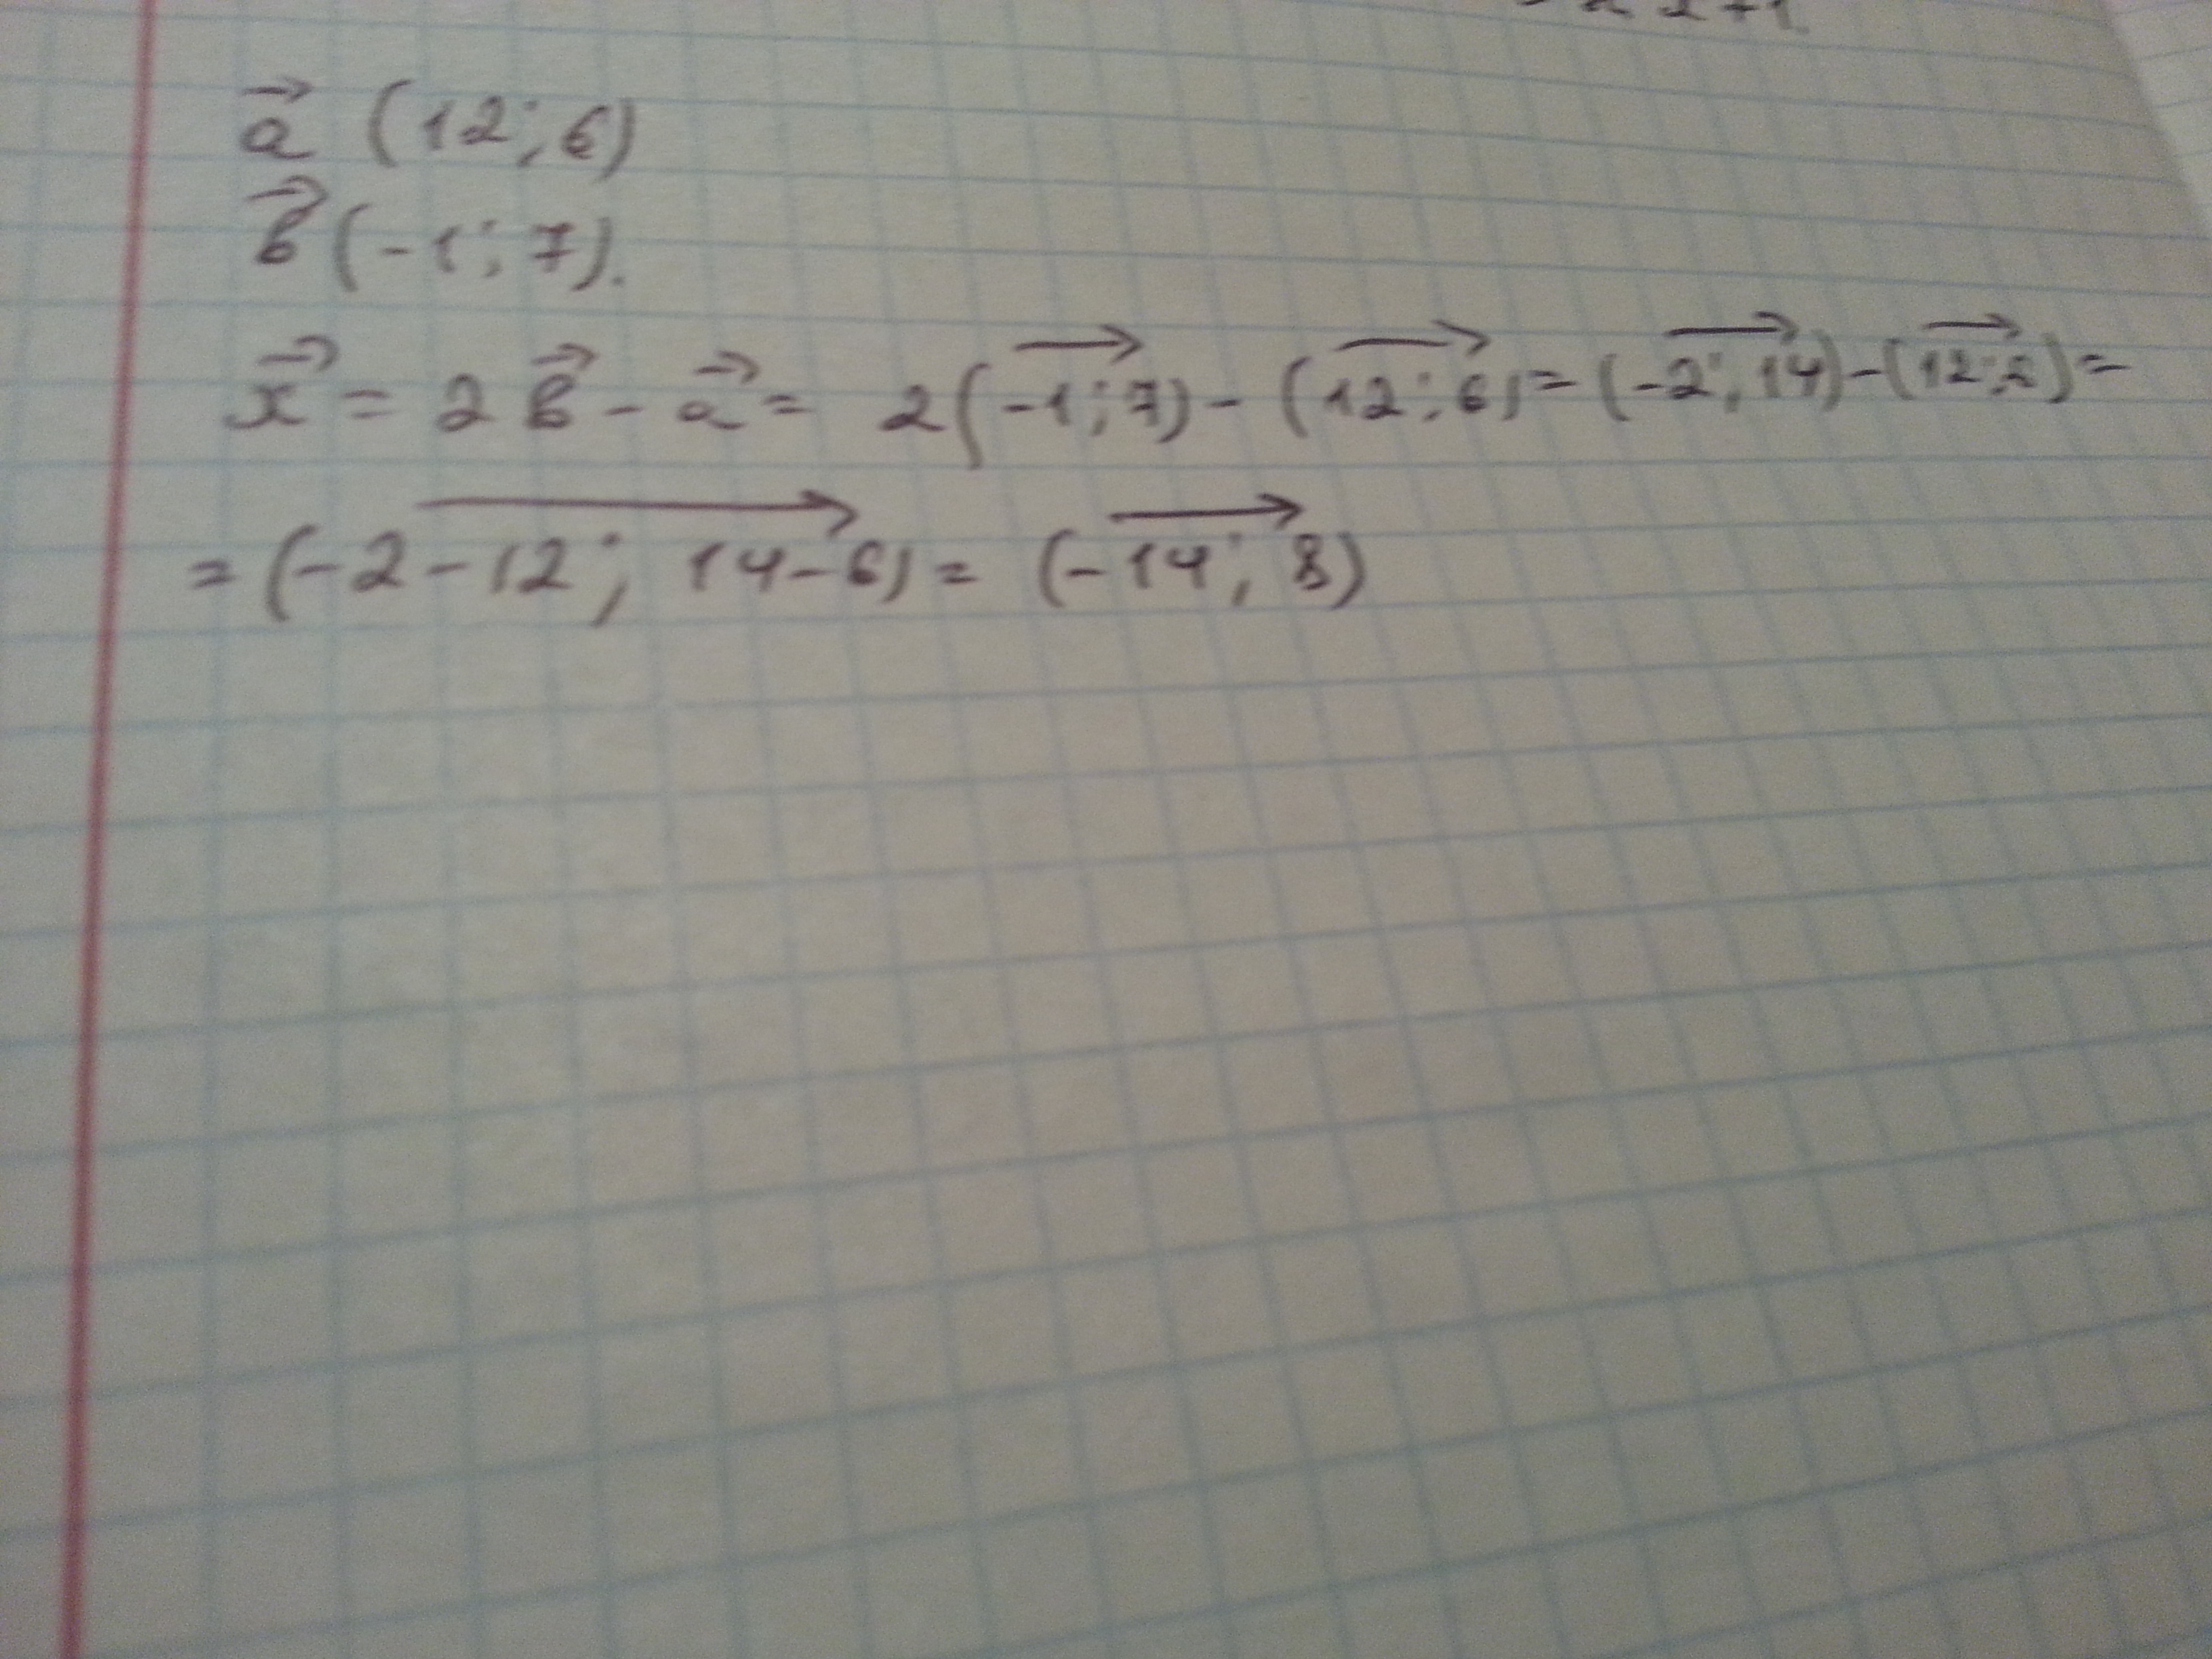 x+1
a⃗ (12; 6)
в⃗ (-1; 7).
x⃗ = 2в⃗ - a⃗ = 2(-1; 7) - (12; 6) = (-2; 14) - (12; 2) =
= (-2-12; 14-6) = (-14; 8)